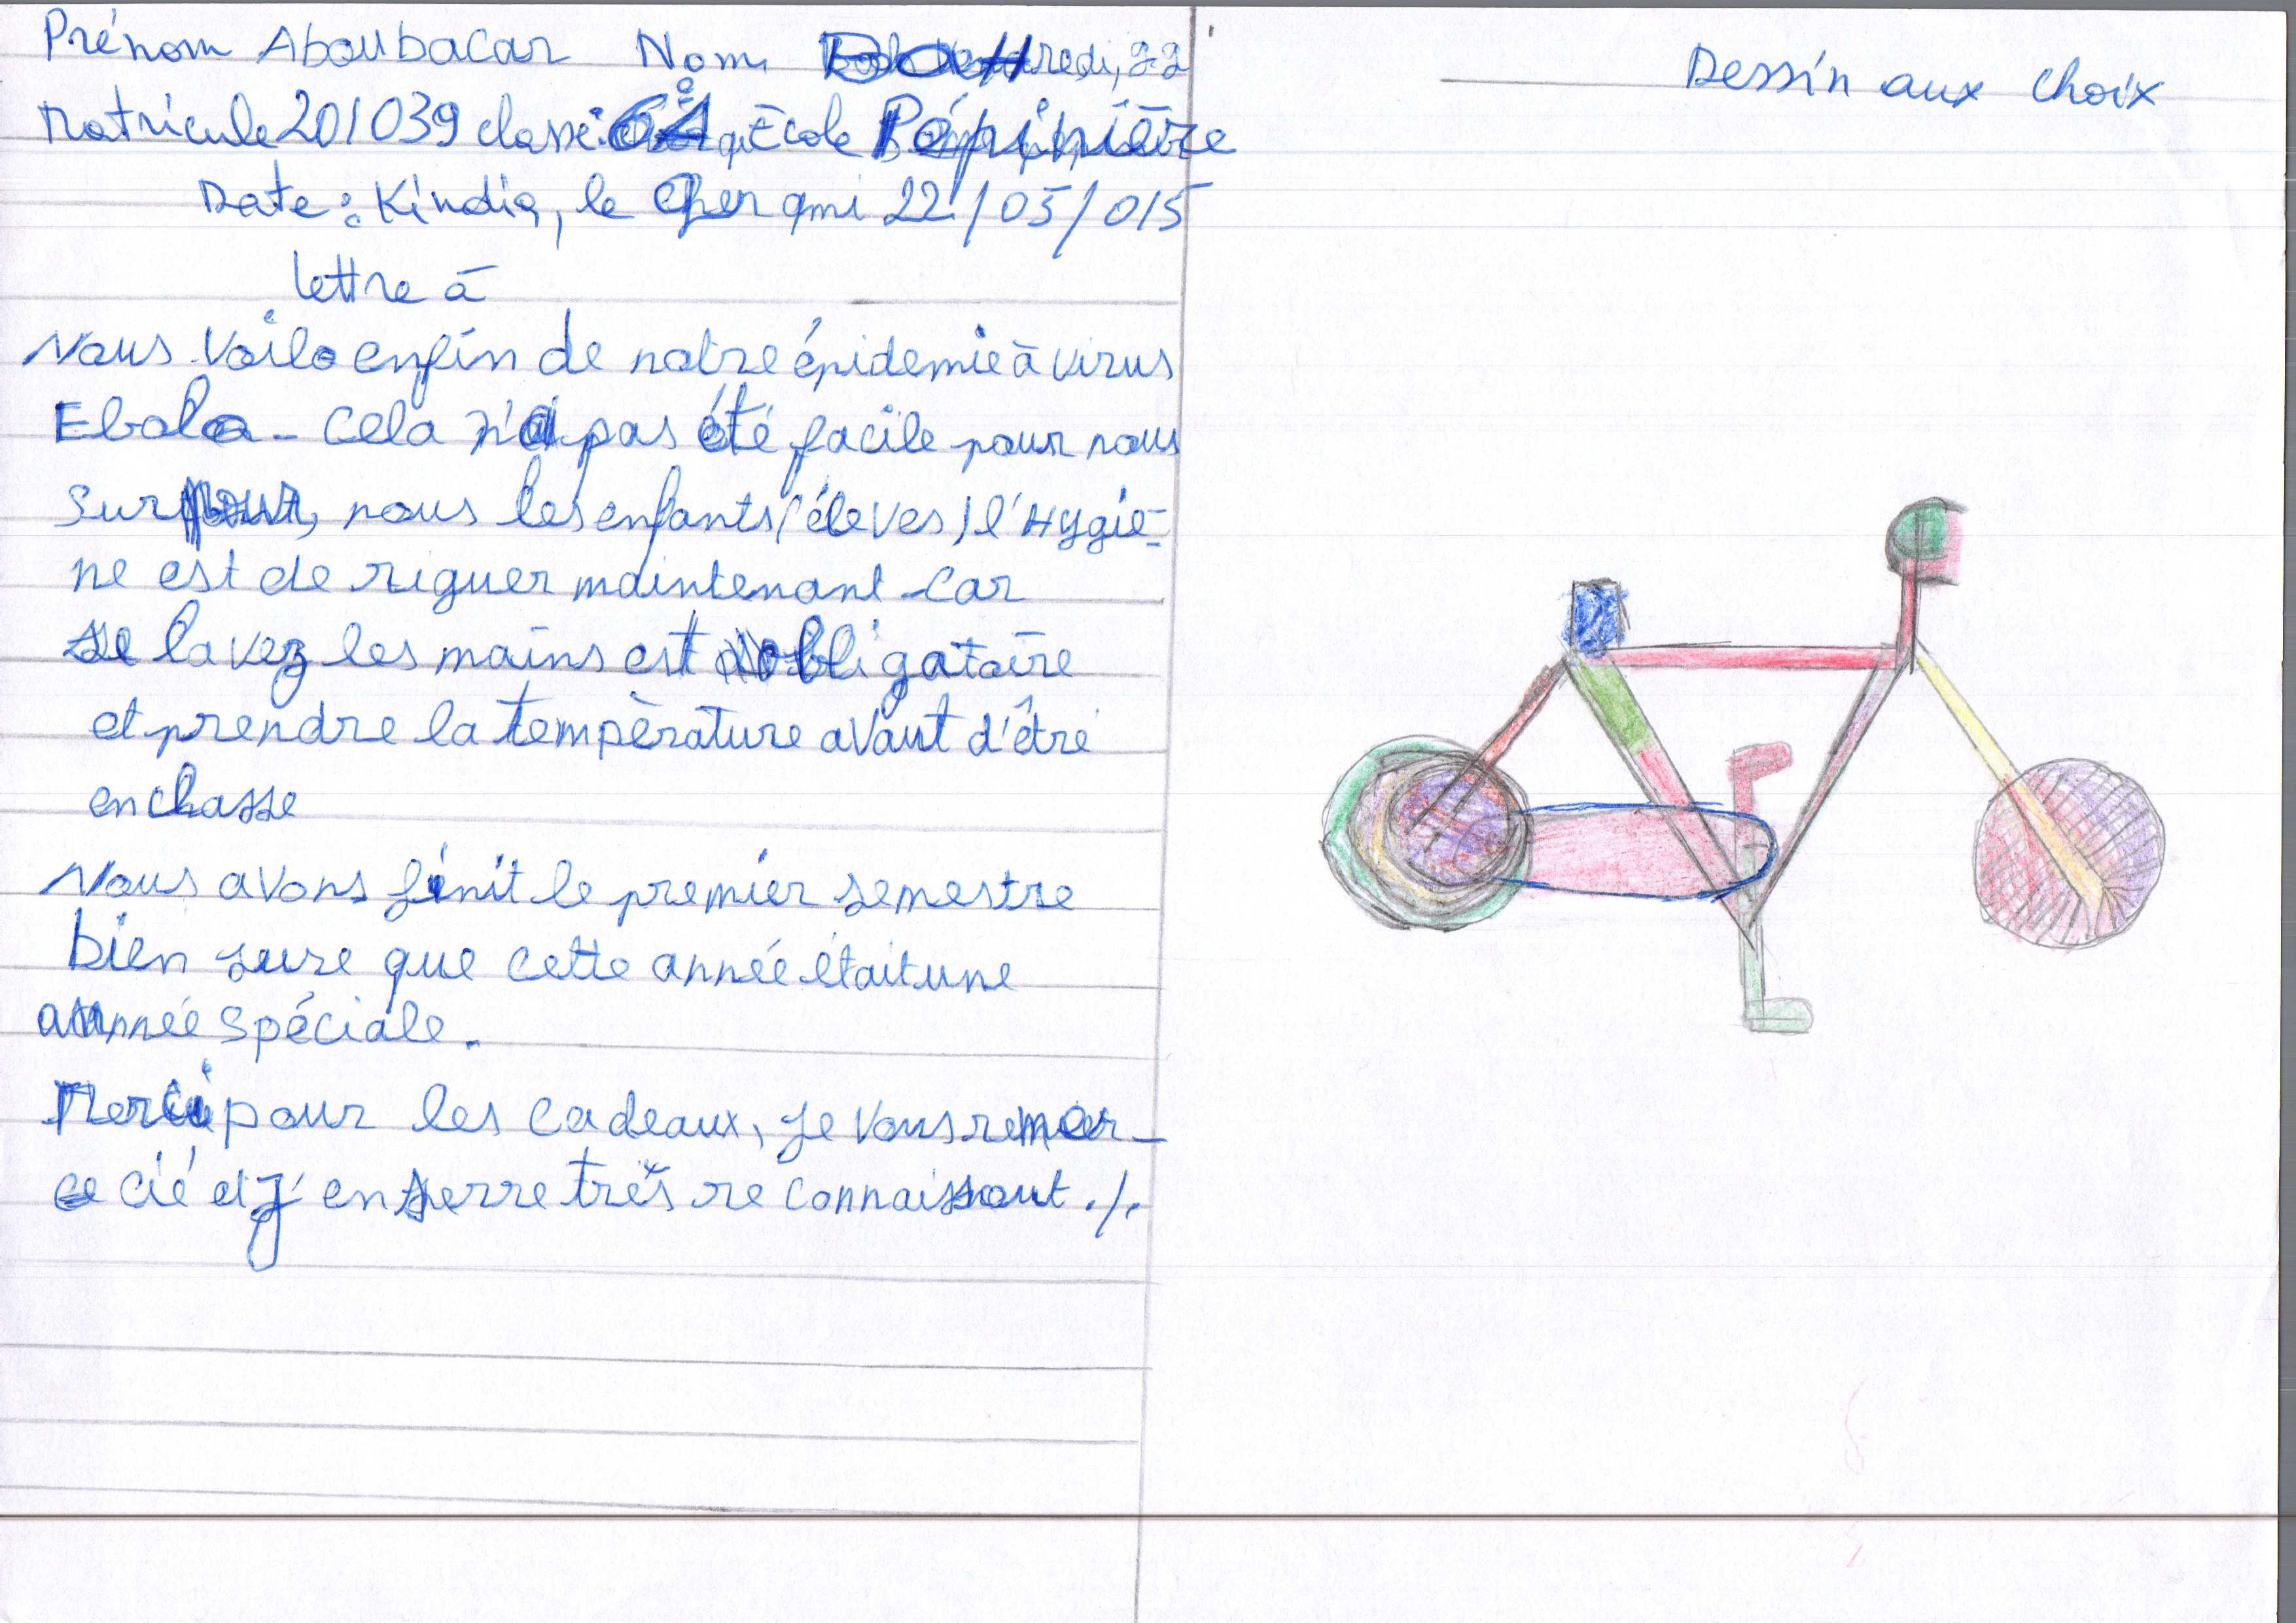 Prénom Aboubacar Nom Bah
Matricule 201039 classe: École Pépinière
Date: Kindia, le 22/05/015
lettre à
Nous voila enfin de notre épidemie à virus
Ebola - Cela n'a pas été facile pour nous
Surtout, nous les enfants (éleves) l'Hygiè-
ne est de riguer maintenant - Car
se lavez les mains est obligatoire
et prendre la tempèrature avant d'être
en classe
Nous avons finit le premier semestre
bien sure que cette année était une
année Spéciale.
Merci pour les Cadeaux, je vous remer-
cié et j'en serre très reconnaissant ./.
Dessin aux choix